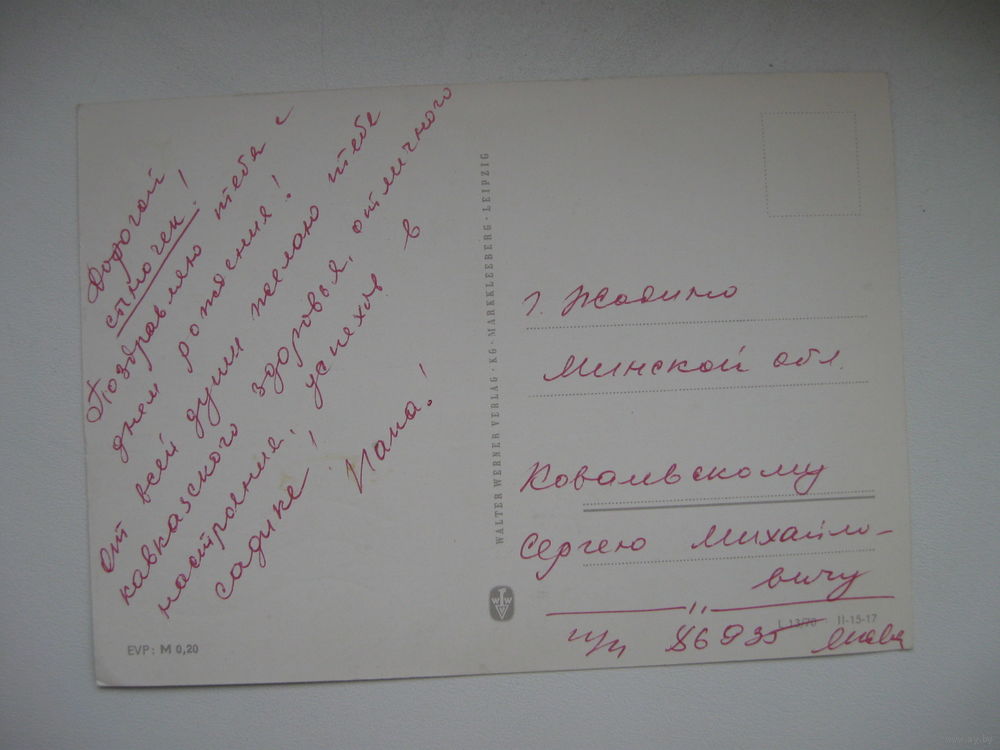 Дорогой
сыночек!
Поздравляю тебя с
днем рождения!
От всей души желаю тебе
кавказского здоровья, отличного
настроения, успехов в
садике!
Папа!
WALTER WERNER VERLAG · KG · MARKKLEEBERG · LEIPZIG
г. Жодино
Минской обл.
Ковалевскому
Сергею Михайло-
вичу
L 13/70 II-15-17
п/п 86935
EVP: M 0,20